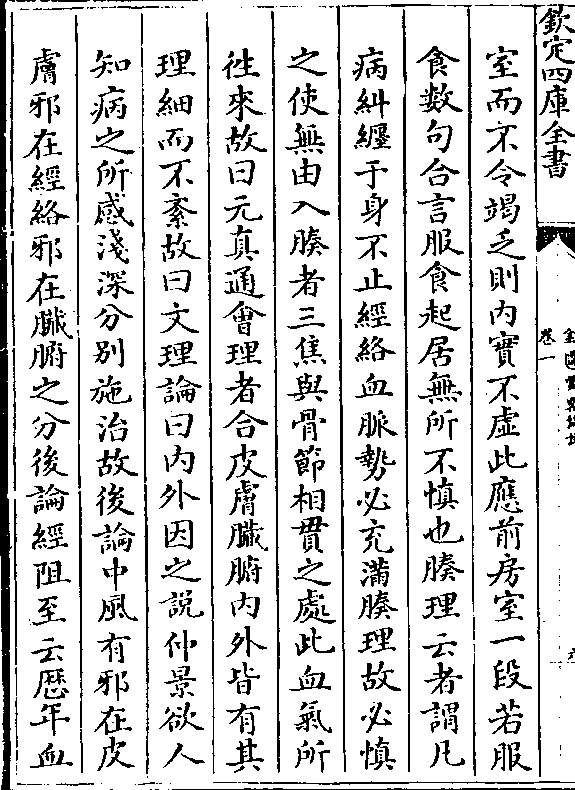 欽定四庫全書
卷一
室而不令竭乏則内實不虚此應前房室一段若服
食數句合言服食起居無所不慎也腠理云者謂凡
病糾纒于身不止經絡血脈勢必充滿腠理故必慎
之使無由入腠者三焦與骨節相貫之處此血氣所
徃來故曰元真通㑹理者合皮膚臓腑内外皆有其
理細而不紊故曰文理論曰内外因之説仲景欲人
知病之所感淺深分别施治故後論中風有邪在皮
膚邪在經絡邪在臓腑之分後論經阻至云歴年血